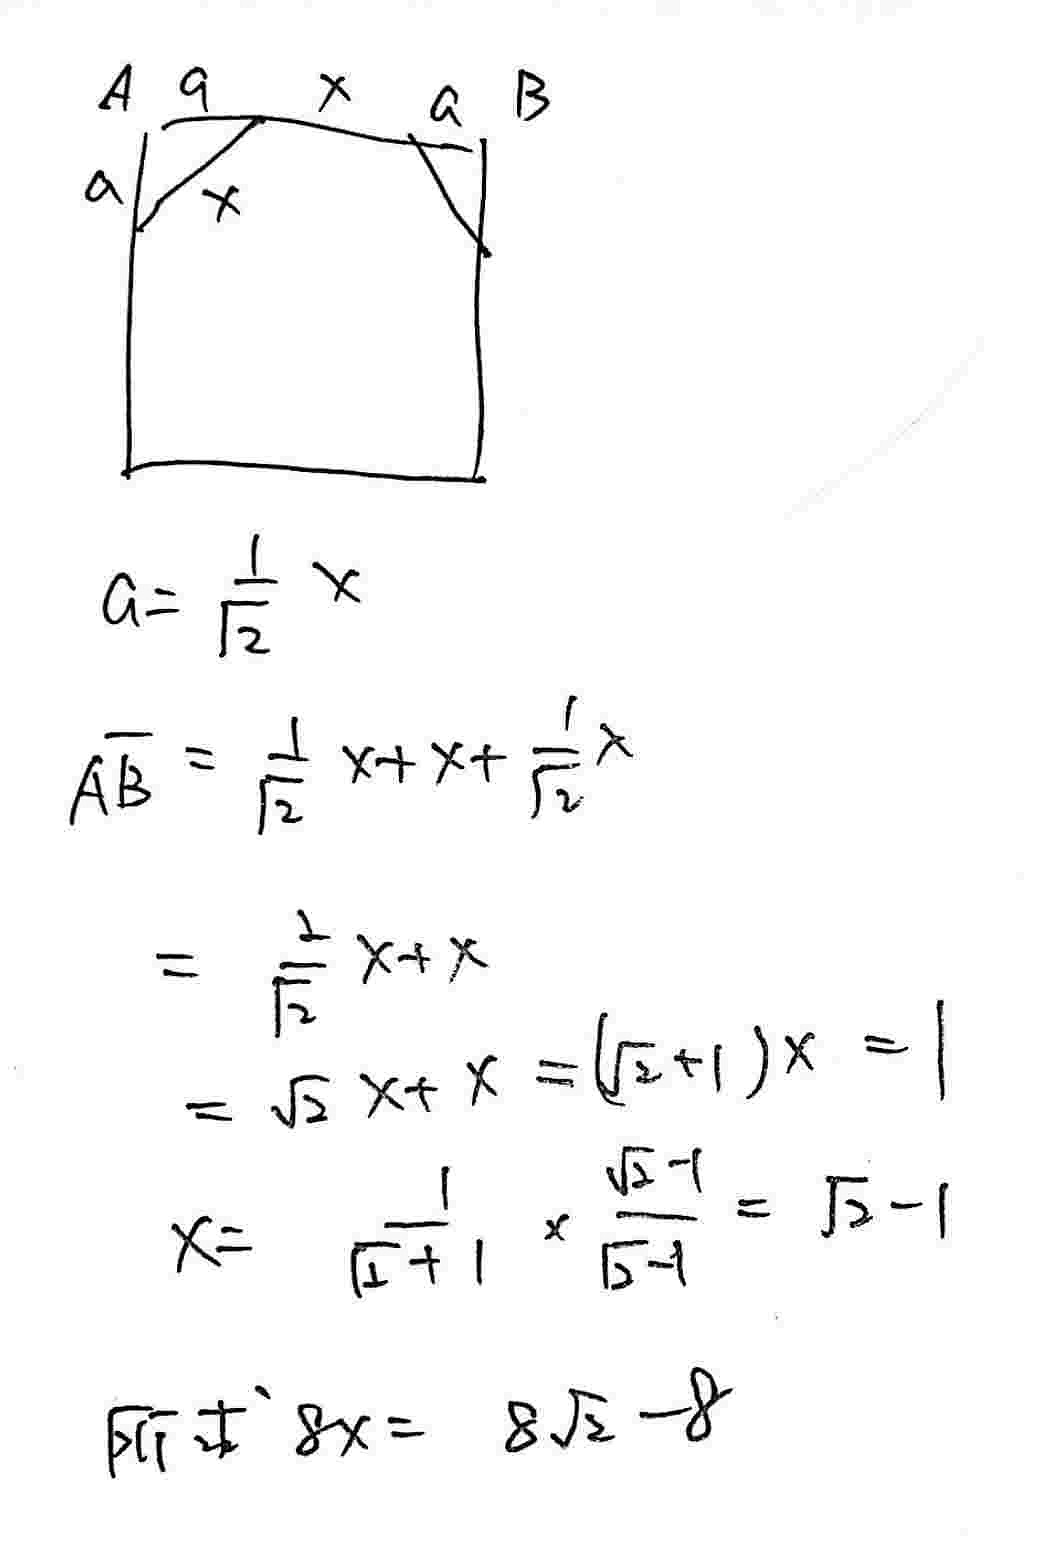 A a x a B
a x
a = 1/√2 x
AB̅ = 1/√2 x + x + 1/√2 x
= 2/√2 x + x
= √2 x + x = (√2+1)x = 1
x = 1/(√2+1) × (√2-1)/(√2-1) = √2-1
8x = 8√2-8